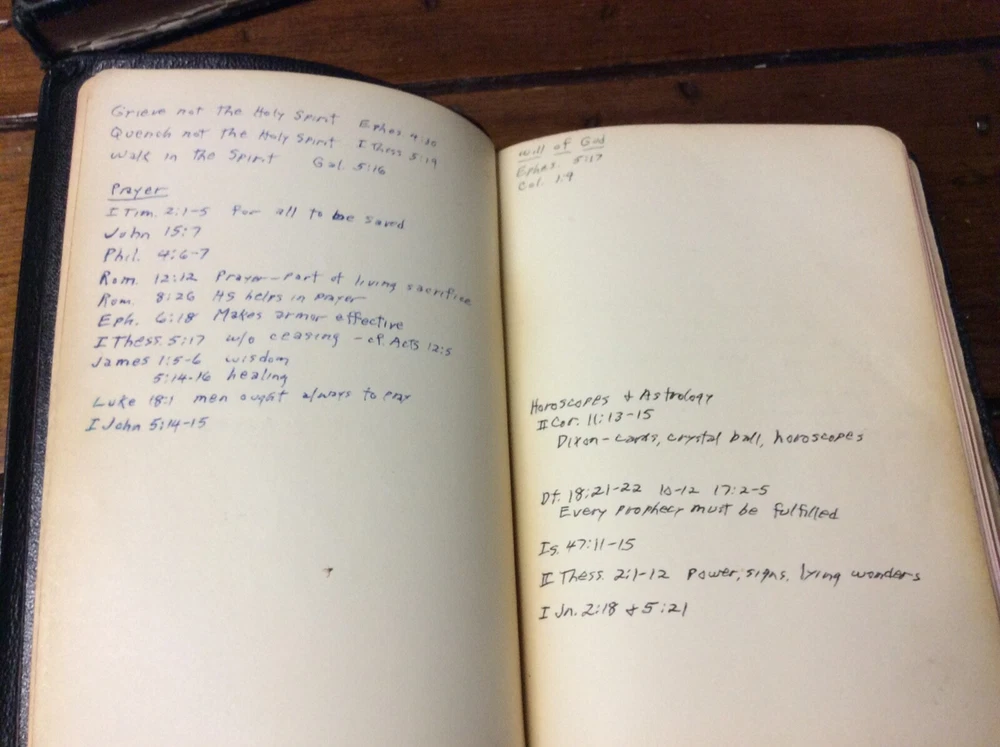 Grieve not the Holy Spirit Ephes 4:30
Quench not the Holy Spirit I Thess 5:19
Walk in the Spirit Gal. 5:16
Prayer
I Tim. 2:1-5 for all to be saved
John 15:7
Phil. 4:6-7
Rom. 12:12 Prayer-part of living sacrifice
Rom. 8:26 HS helps in prayer
Eph. 6:18 Makes armor effective
I Thess. 5:17 w/o ceasing - cf. Acts 12:5
James 1:5-6 wisdom
5:14-16 healing
Luke 18:1 men ought always to pray
I John 5:14-15
Will of God
Ephes. 5:17
Col. 1:9
Horoscopes & Astrology
II Cor. 11:13-15
Dixon-cards, crystal ball, horoscopes
Dt. 18:21-22 10-12 17:2-5
Every Prophecy must be fulfilled
Is. 47:11-15
II Thess. 2:1-12 Power, signs, lying wonders
I Jn. 2:18 & 5:21